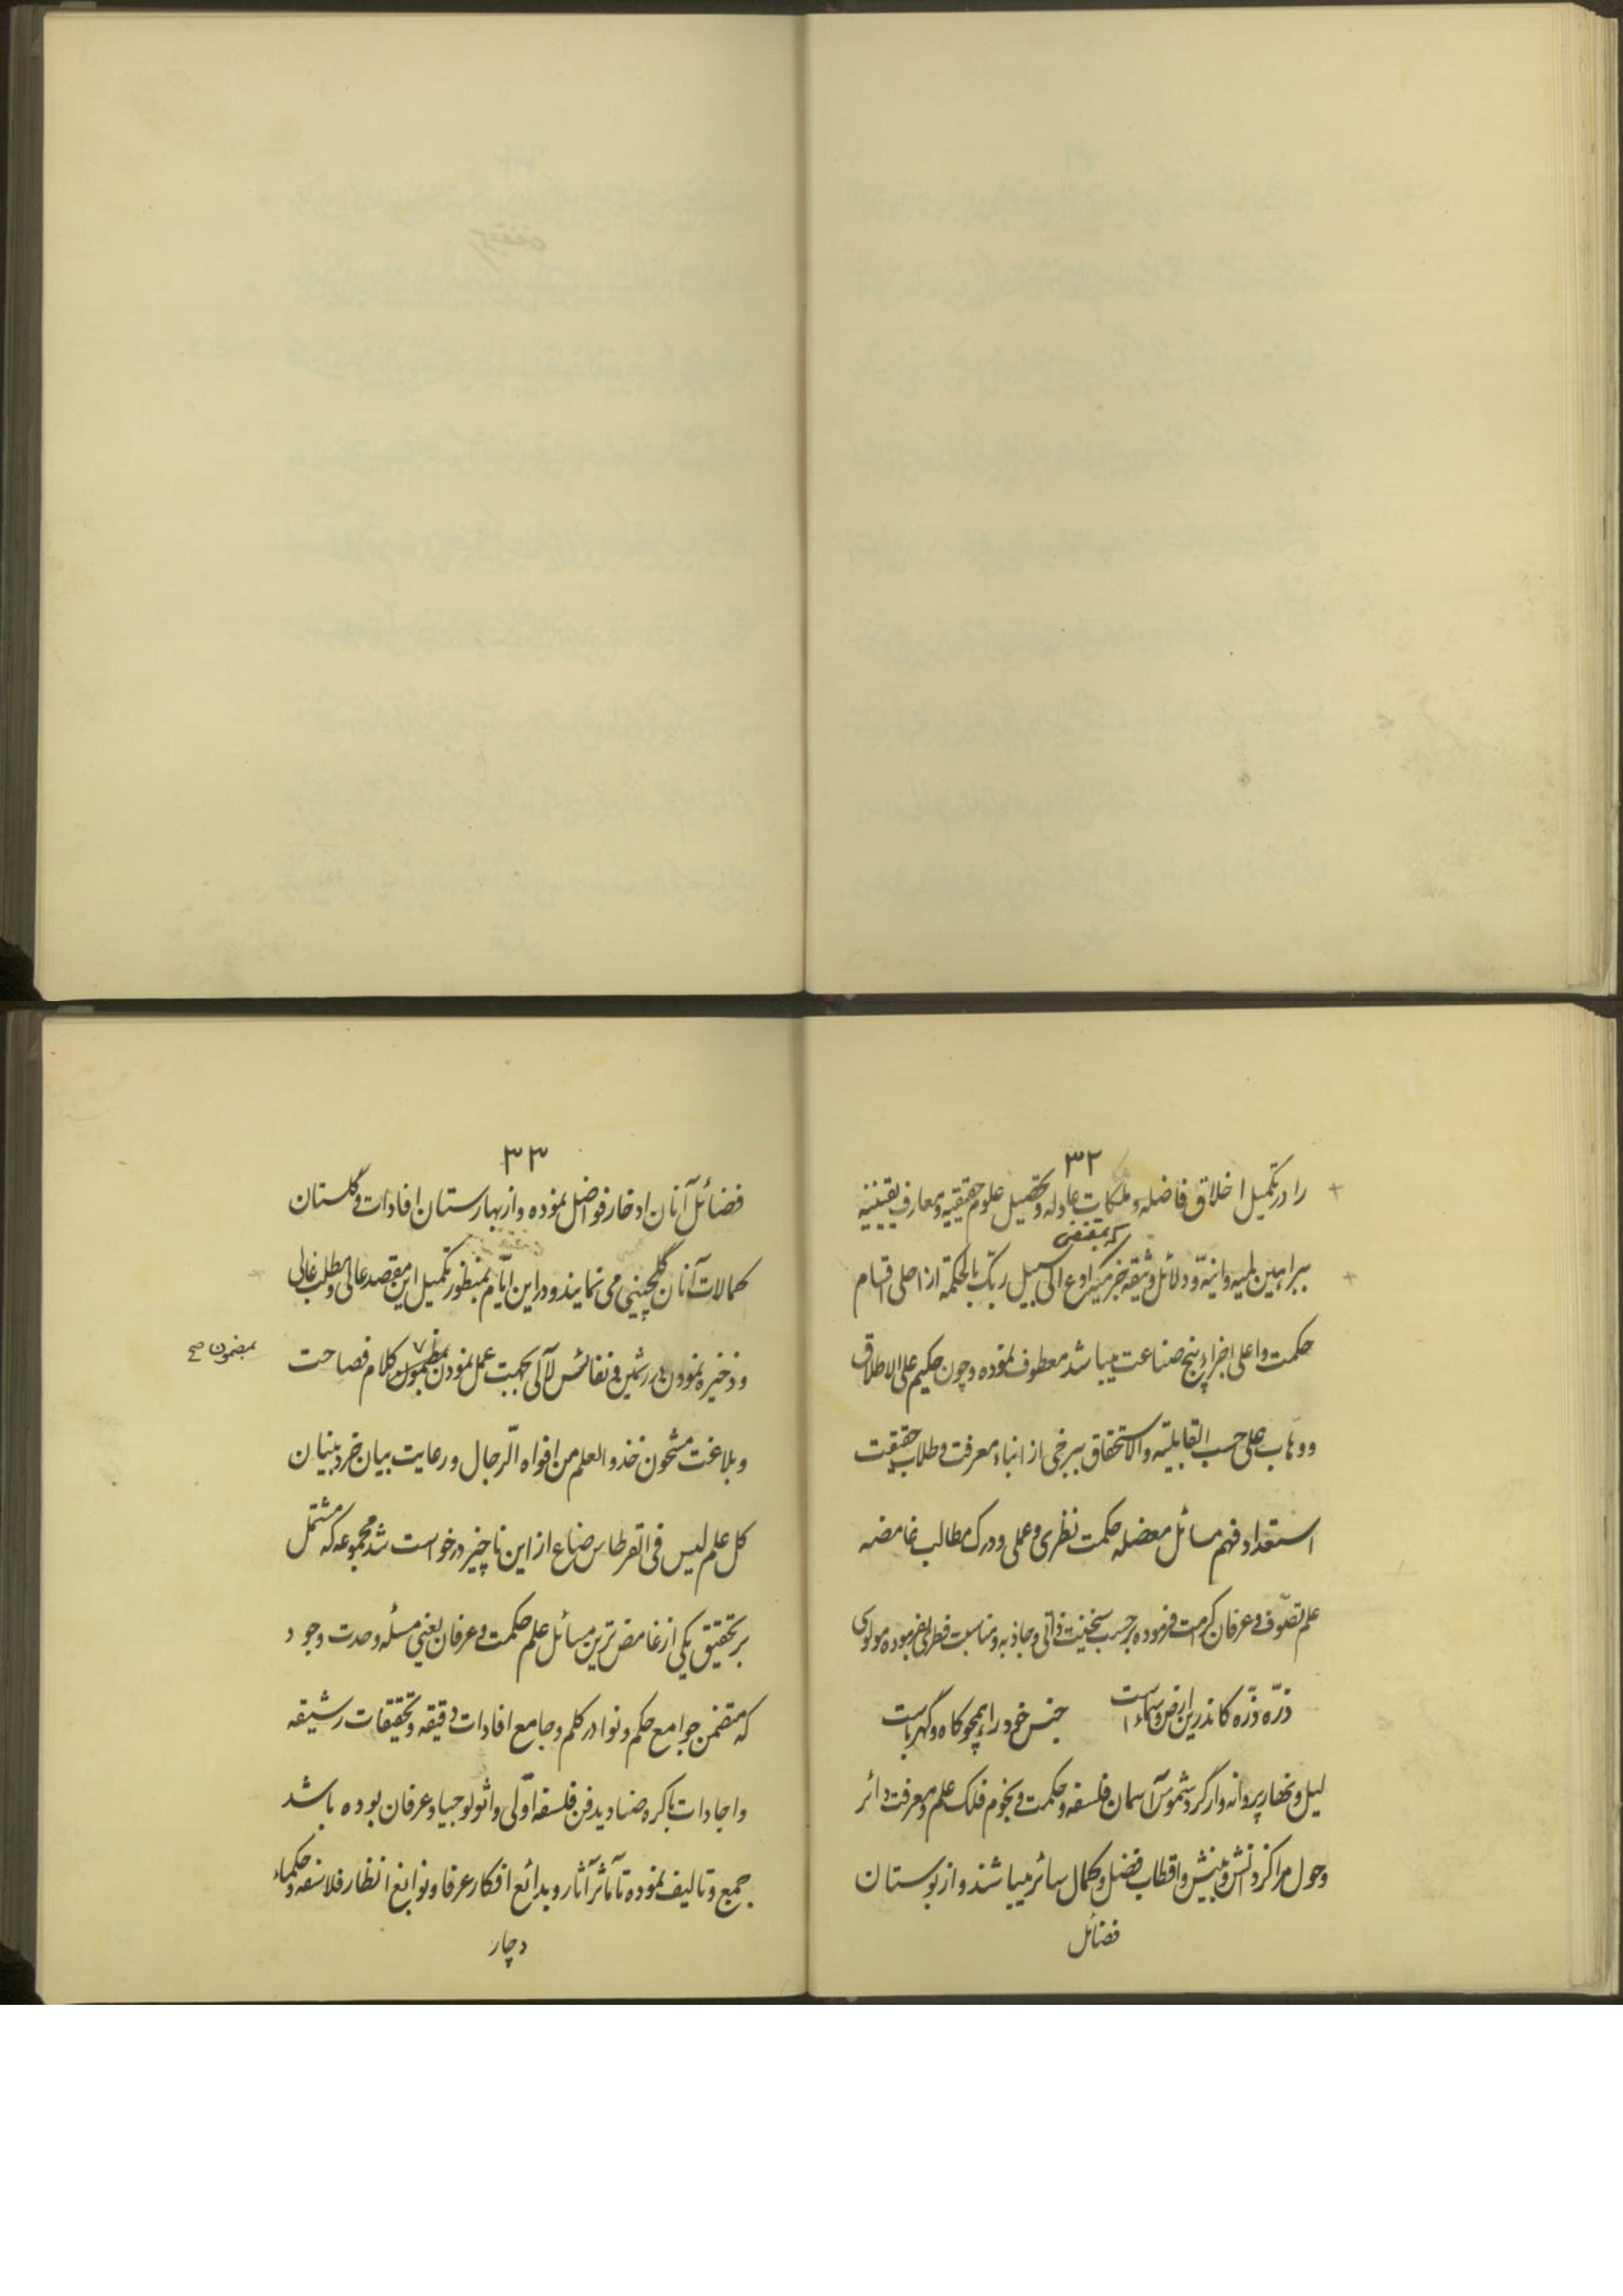 ۳۲
را در تکمیل اخلاق فاضله و ملکات عادله و تحصیل علوم حقیقیه و معارف یقینیه
که بمقتضی
ببراهین لمیه و انیّه و دلائل وثیقه خبرمیکه ادع الی سبیل ربک بالحکمة از اصلی اقسام
حکمت و اعلی اجزاء پنج صناعت میباشد معطوف نموده و چون حکیم علی الاطلاق
و وهاب علی حسب القابلیّه والاستحقاق ببرخی از ابناء معرفت و طلاب حقیقت
استعداد فهم مسائل معضله حکمت نظری و عملی و درک مطالب غامضه
علم تصوّف و عرفان کرمت فرموده برحسب سنخیت ذاتی و جاذبه و مناسبت فطری بفرموده مولوی
ذرّه ذرّه کاندرین ارض و سماست جنس خود را همچو کاه و کهرباست
لیل و نهار پروانه وار گرد شموس آسمان فلسفه و حکمت و نجوم فلک علم و معرفت دائر
و حول مراکز دانش و بینش و اقطاب فضل و کمال سائر میباشند و از بوستان
فضائل
۳۳
فضائل آنان ادخار فواضل نموده و از بهارستان افادات و گلستان
کمالات آنان گلچینی می نمایند و در این ایّام بمنظور تکمیل این مقصد عالی و مطلب غالی
و ذخیره نمودن درر ثمین و نفائس لآلی بجهت عمل نمودن کلام فصاحت
بمضمون صح
و بلاغت مشحون خذوالعلم من افواه الّرجال و رعایت بیان خرد بنیان
کل علم لیس فی القرطاس ضاع از این ناچیز درخواست شد مجموعه که مشتمل
بر تحقیق یکی از غامض ترین مسائل علم حکمت و عرفان یعنی مسئله وحدت وجود
که متضمن جوامع حکم و نوادر کلم و جامع افادات دقیقه و تحقیقات رشیقه
و اجادات باکره صنادید فن فلسفه اوّلی و اثولوجیا و عرفان بوده باشد
جمع و تالیف نموده تا مآثر آثار و بدائع افکار عرفا و نوابغ انظار فلاسفه و حکماء
دچار